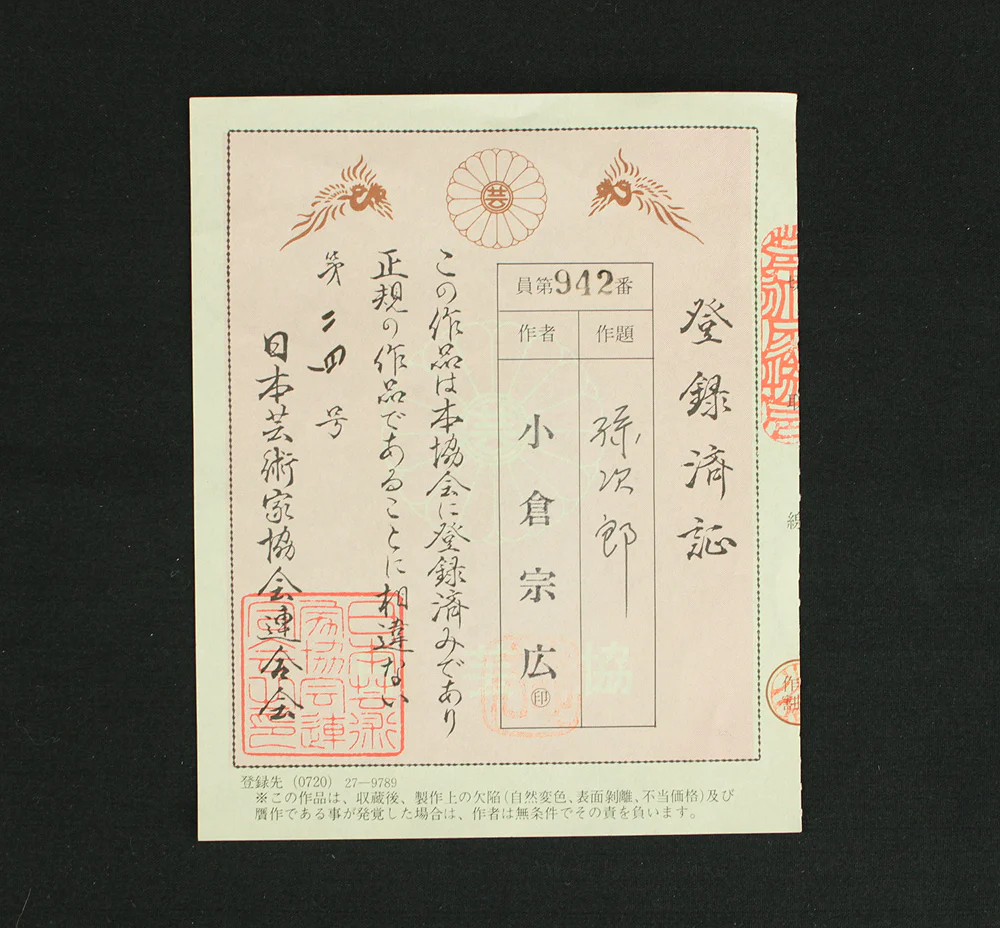 登録済証
員第942番
作題
弥次郎
作者
小倉宗広
印
この作品は本協会に登録済みであり
正規の作品であることに相違ない
第二四号
日本芸術家協会連合会
芸
芸協
登録先 (0720) 27—9789
※この作品は、収蔵後、製作上の欠陥(自然変色、表面剝離、不当価格)及び
贋作である事が発覚した場合は、作者は無条件でその責を負います。
取
線